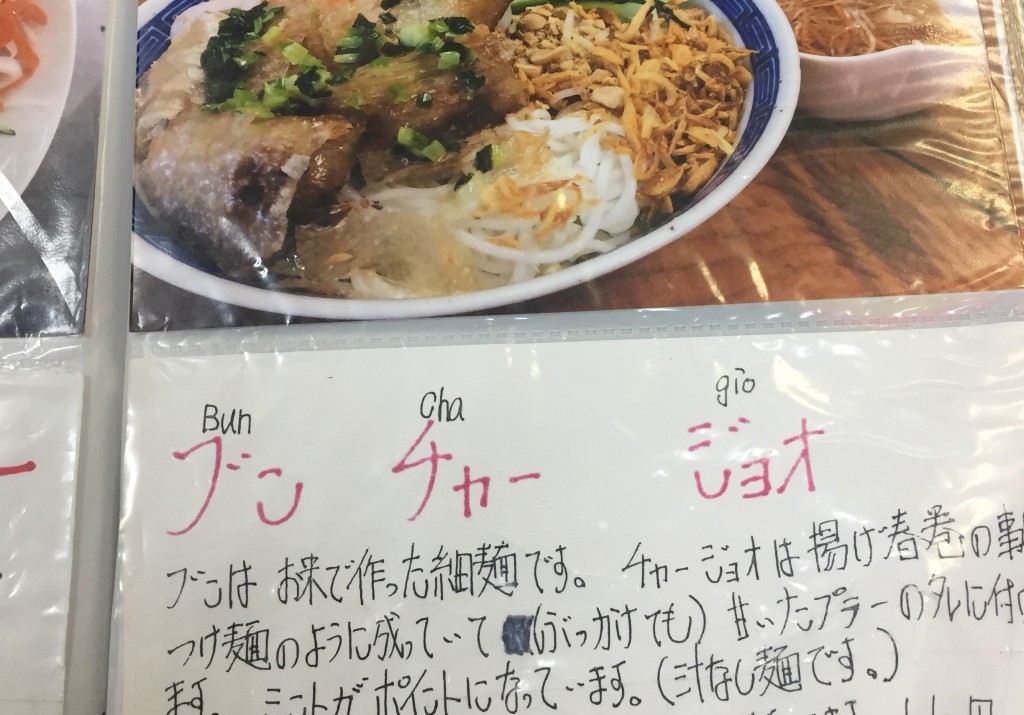 Bun Cha gio
ブン チャー ジョオ
ブンは お米で作った細麺です。 チャージョオは揚げ春巻の事
つけ麺のように成っていて (ぶっかけでも) 甘いたプラーのタレに付け
ます。 ミントが ポイントになっています。(汁なし麺です。)